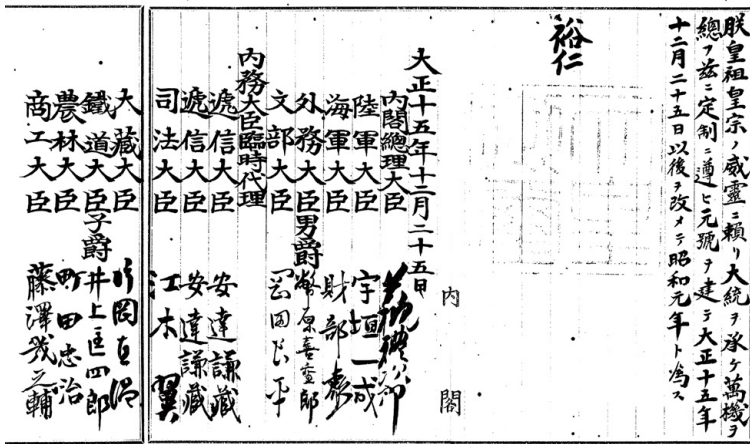 朕皇祖皇宗ノ威靈ニ頼リ大統ヲ承ケ萬機ヲ
總フ茲ニ定制ニ遵ヒ元號ヲ建テ大正十五年
十二月二十五日以後ヲ改メテ昭和元年ト爲ス
裕仁
内閣
大正十五年十二月二十五日
内閣總理大臣 若槻禮次郎
陸軍大臣 宇垣一成
海軍大臣 財部彪
外務大臣男爵 幣原喜重郎
文部大臣 岡田良平
内務大臣臨時代理
遞信大臣 安達謙藏
遞信大臣 安達謙藏
司法大臣 江木翼
大藏大臣 片岡直溫
鐵道大臣子爵 井上匡四郎
農林大臣 町田忠治
商工大臣 藤澤幾之輔